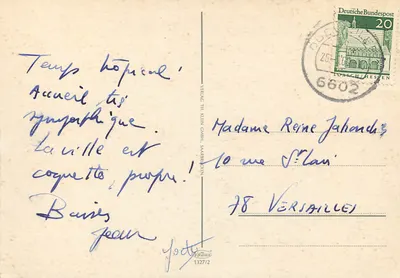 Temps tropical !
Accueil très
sympathique.
La ville est
coquette, propre !
Baisers
Jean
Madame Reine
10 rue St
78 VERSAILLES
Deutsche Bundespost
20
6602
1327/2